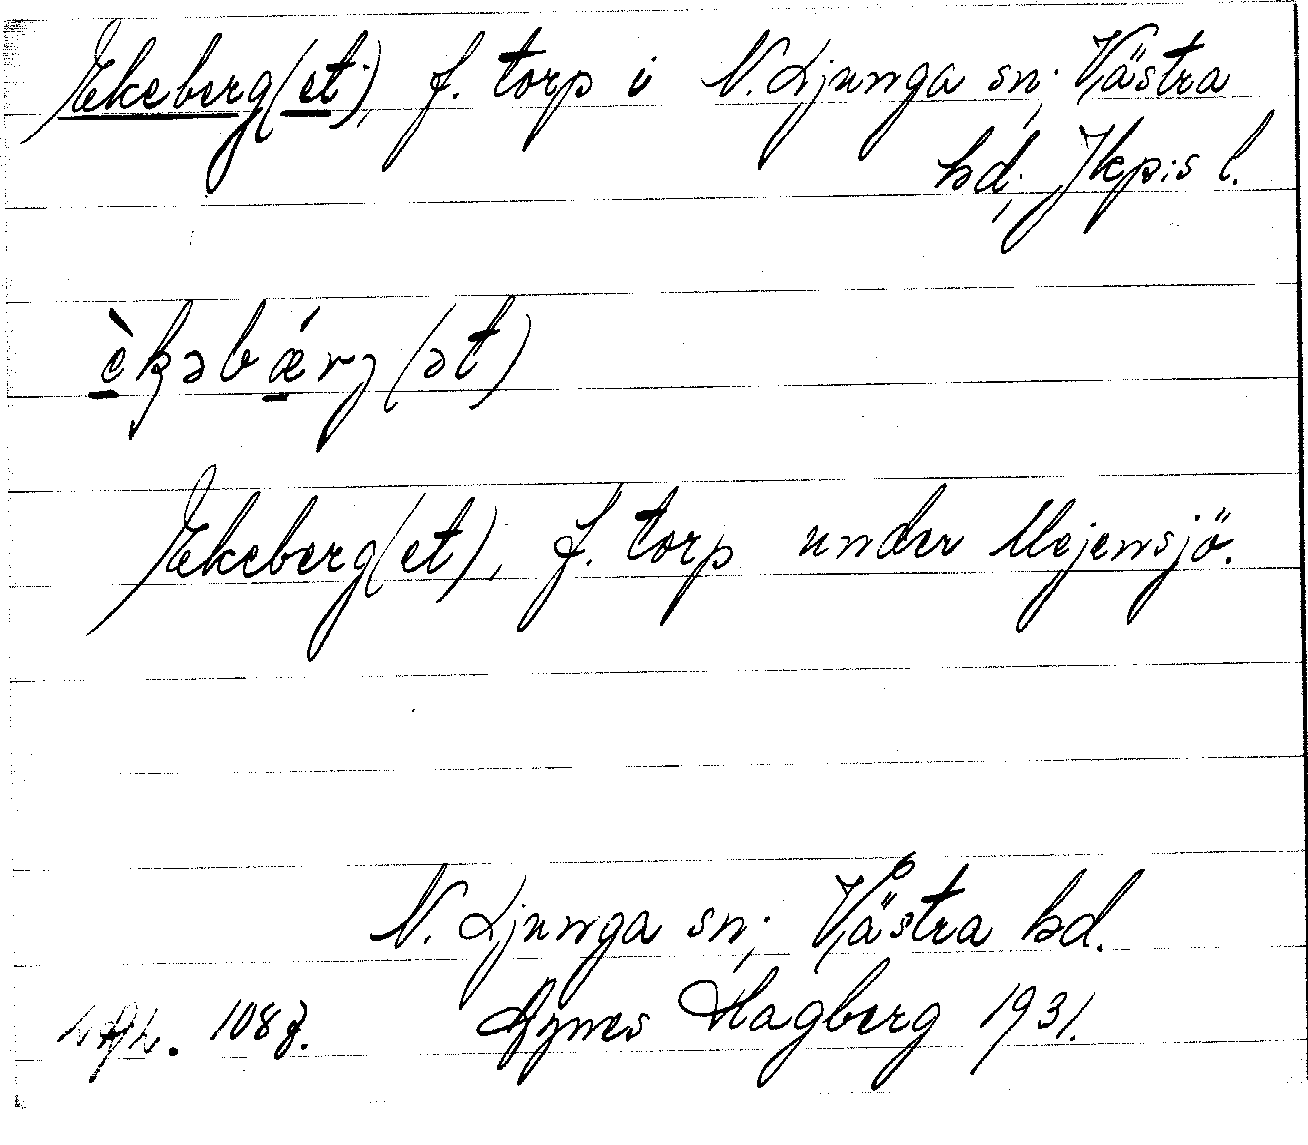 Ekeberg(et), f. torp i N. Ljunga sn; Västra
hd; Jkp:s l.
èkəbǽrj(ət)
Ekeberg(et), f. torp under Mejensjö.
N. Ljunga sn; Västra hd.
1087. Agnes Hagberg 1931.